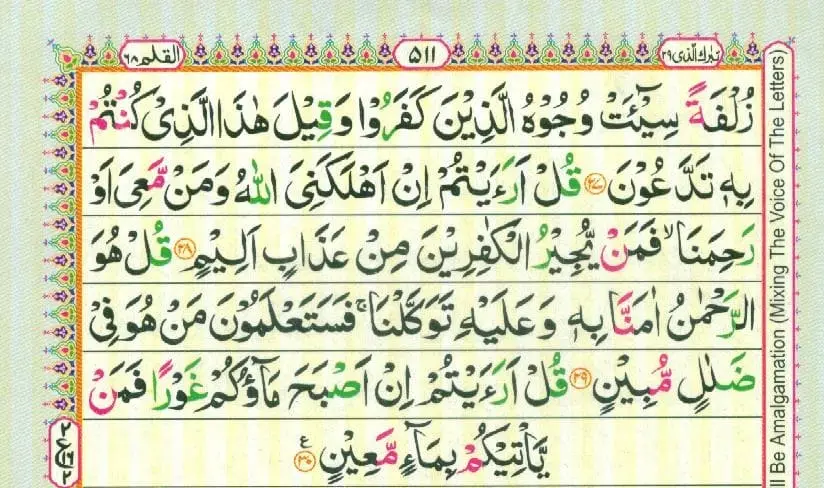 تبٰرك الّذى ٢٩
٥١١
القلم ٦٨
زُلْفَةً سِيْٓـَٔتْ وُجُوْهُ الَّذِيْنَ كَفَرُوْا وَقِيْلَ هٰذَا الَّذِىْ كُنْتُمْ
بِهٖ تَدَّعُوْنَ ٢٧ قُلْ اَرَءَيْتُمْ اِنْ اَهْلَكَنِىَ اللّٰهُ وَمَنْ مَّعِىَ اَوْ
رَحِمَنَا ۙ فَمَنْ يُّجِيْرُ الْكٰفِرِيْنَ مِنْ عَذَابٍ اَلِيْمٍ ٢٨ قُلْ هُوَ
الرَّحْمٰنُ اٰمَنَّا بِهٖ وَعَلَيْهِ تَوَكَّلْنَا ۚ فَسَتَعْلَمُوْنَ مَنْ هُوَ فِىْ
ضَلٰلٍ مُّبِيْنٍ ٢٩ قُلْ اَرَءَيْتُمْ اِنْ اَصْبَحَ مَآؤُكُمْ غَوْرًا فَمَنْ
يَّاْتِيْكُمْ بِمَآءٍ مَّعِيْنٍ ٣٠ ع
٢
ع
١٦
٢
ll Be Amalgamation (Mixing The Voice Of The Letters)